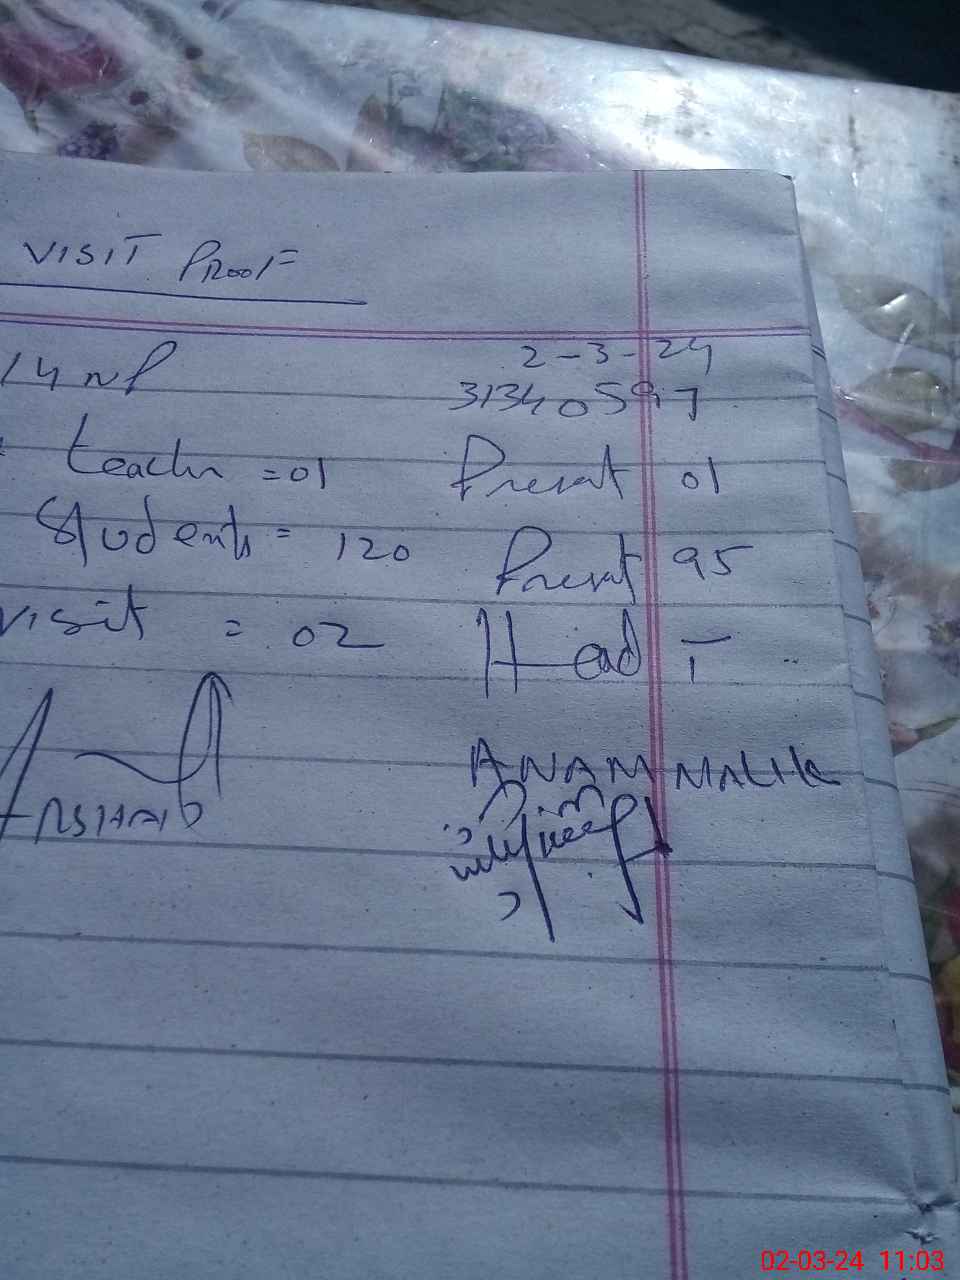 VISIT PROOF
14 NP 2-3-24
31340597
teacher = 01 Present 01
Students = 120 Present 95
visit = 02 Head T
ANAM MALIK
ARSHAD
02-03-24 11:03